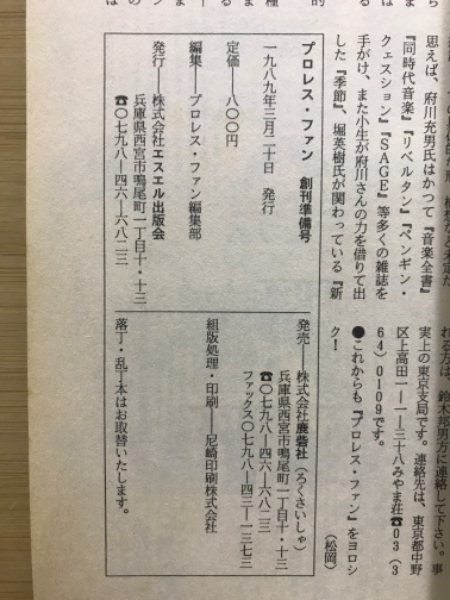 思えば、府川充男氏はかつて『音楽全書』
『同時代音楽』『リベルタン』『ペンギン・
クェスション』『SAGE』等多くの雑誌を
手がけ、また小生が府川さんの力を借りて出
した『季節』、堀英樹氏が関わっている『新
れる方は、鈴木邦男方に連絡して下さい。事
実上の東京支局です。連絡先は、東京都中野
区上高田一―一―三十八みやま荘☎03(3
64)0109です。
●これからも『プロレス・ファン』をヨロシ
ク!
(松岡)
プロレス・ファン 創刊準備号
一九八九年三月二十日 発行
定価―八〇〇円
編集―プロレス・ファン編集部
発行―株式会社エスエル出版会
兵庫県西宮市鳴尾町一丁目十・十三
☎〇七九八―四六―六八二三
発売―株式会社鹿砦社(ろくさいしゃ)
兵庫県西宮市鳴尾町一丁目十・十三
☎〇七九八―四六―六八二三
ファックス〇七九八―四三―一三七三
組版処理・印刷―尼崎印刷株式会社
落丁・乱丁本はお取替いたします。